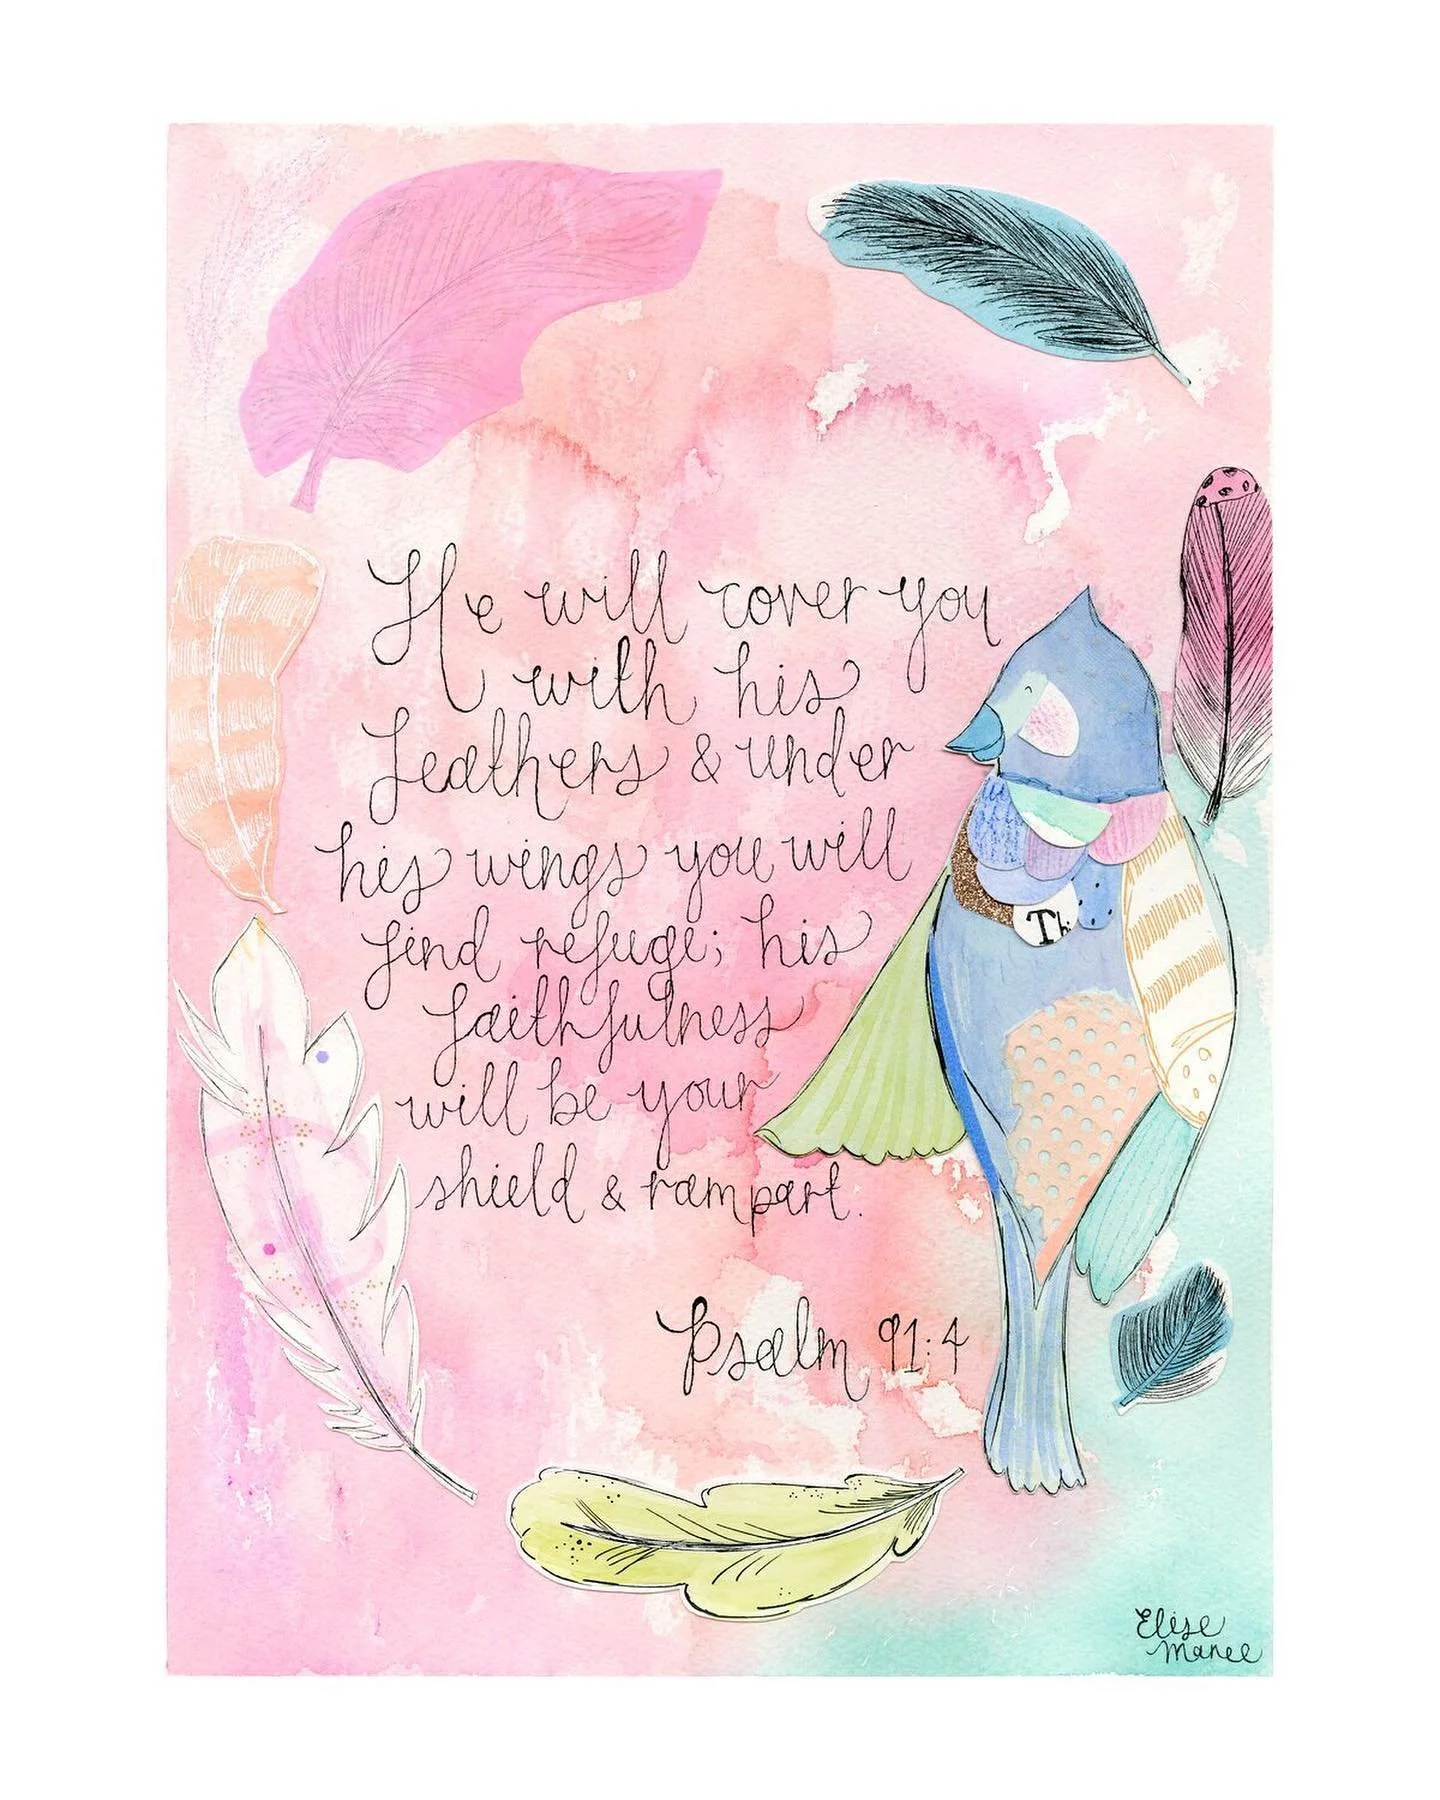 He will cover you
with his
feathers & under
his wings you will
find refuge; his
faithfulness
will be your
shield & rampart.
Psalm 91:4
Th
Elise
Maree